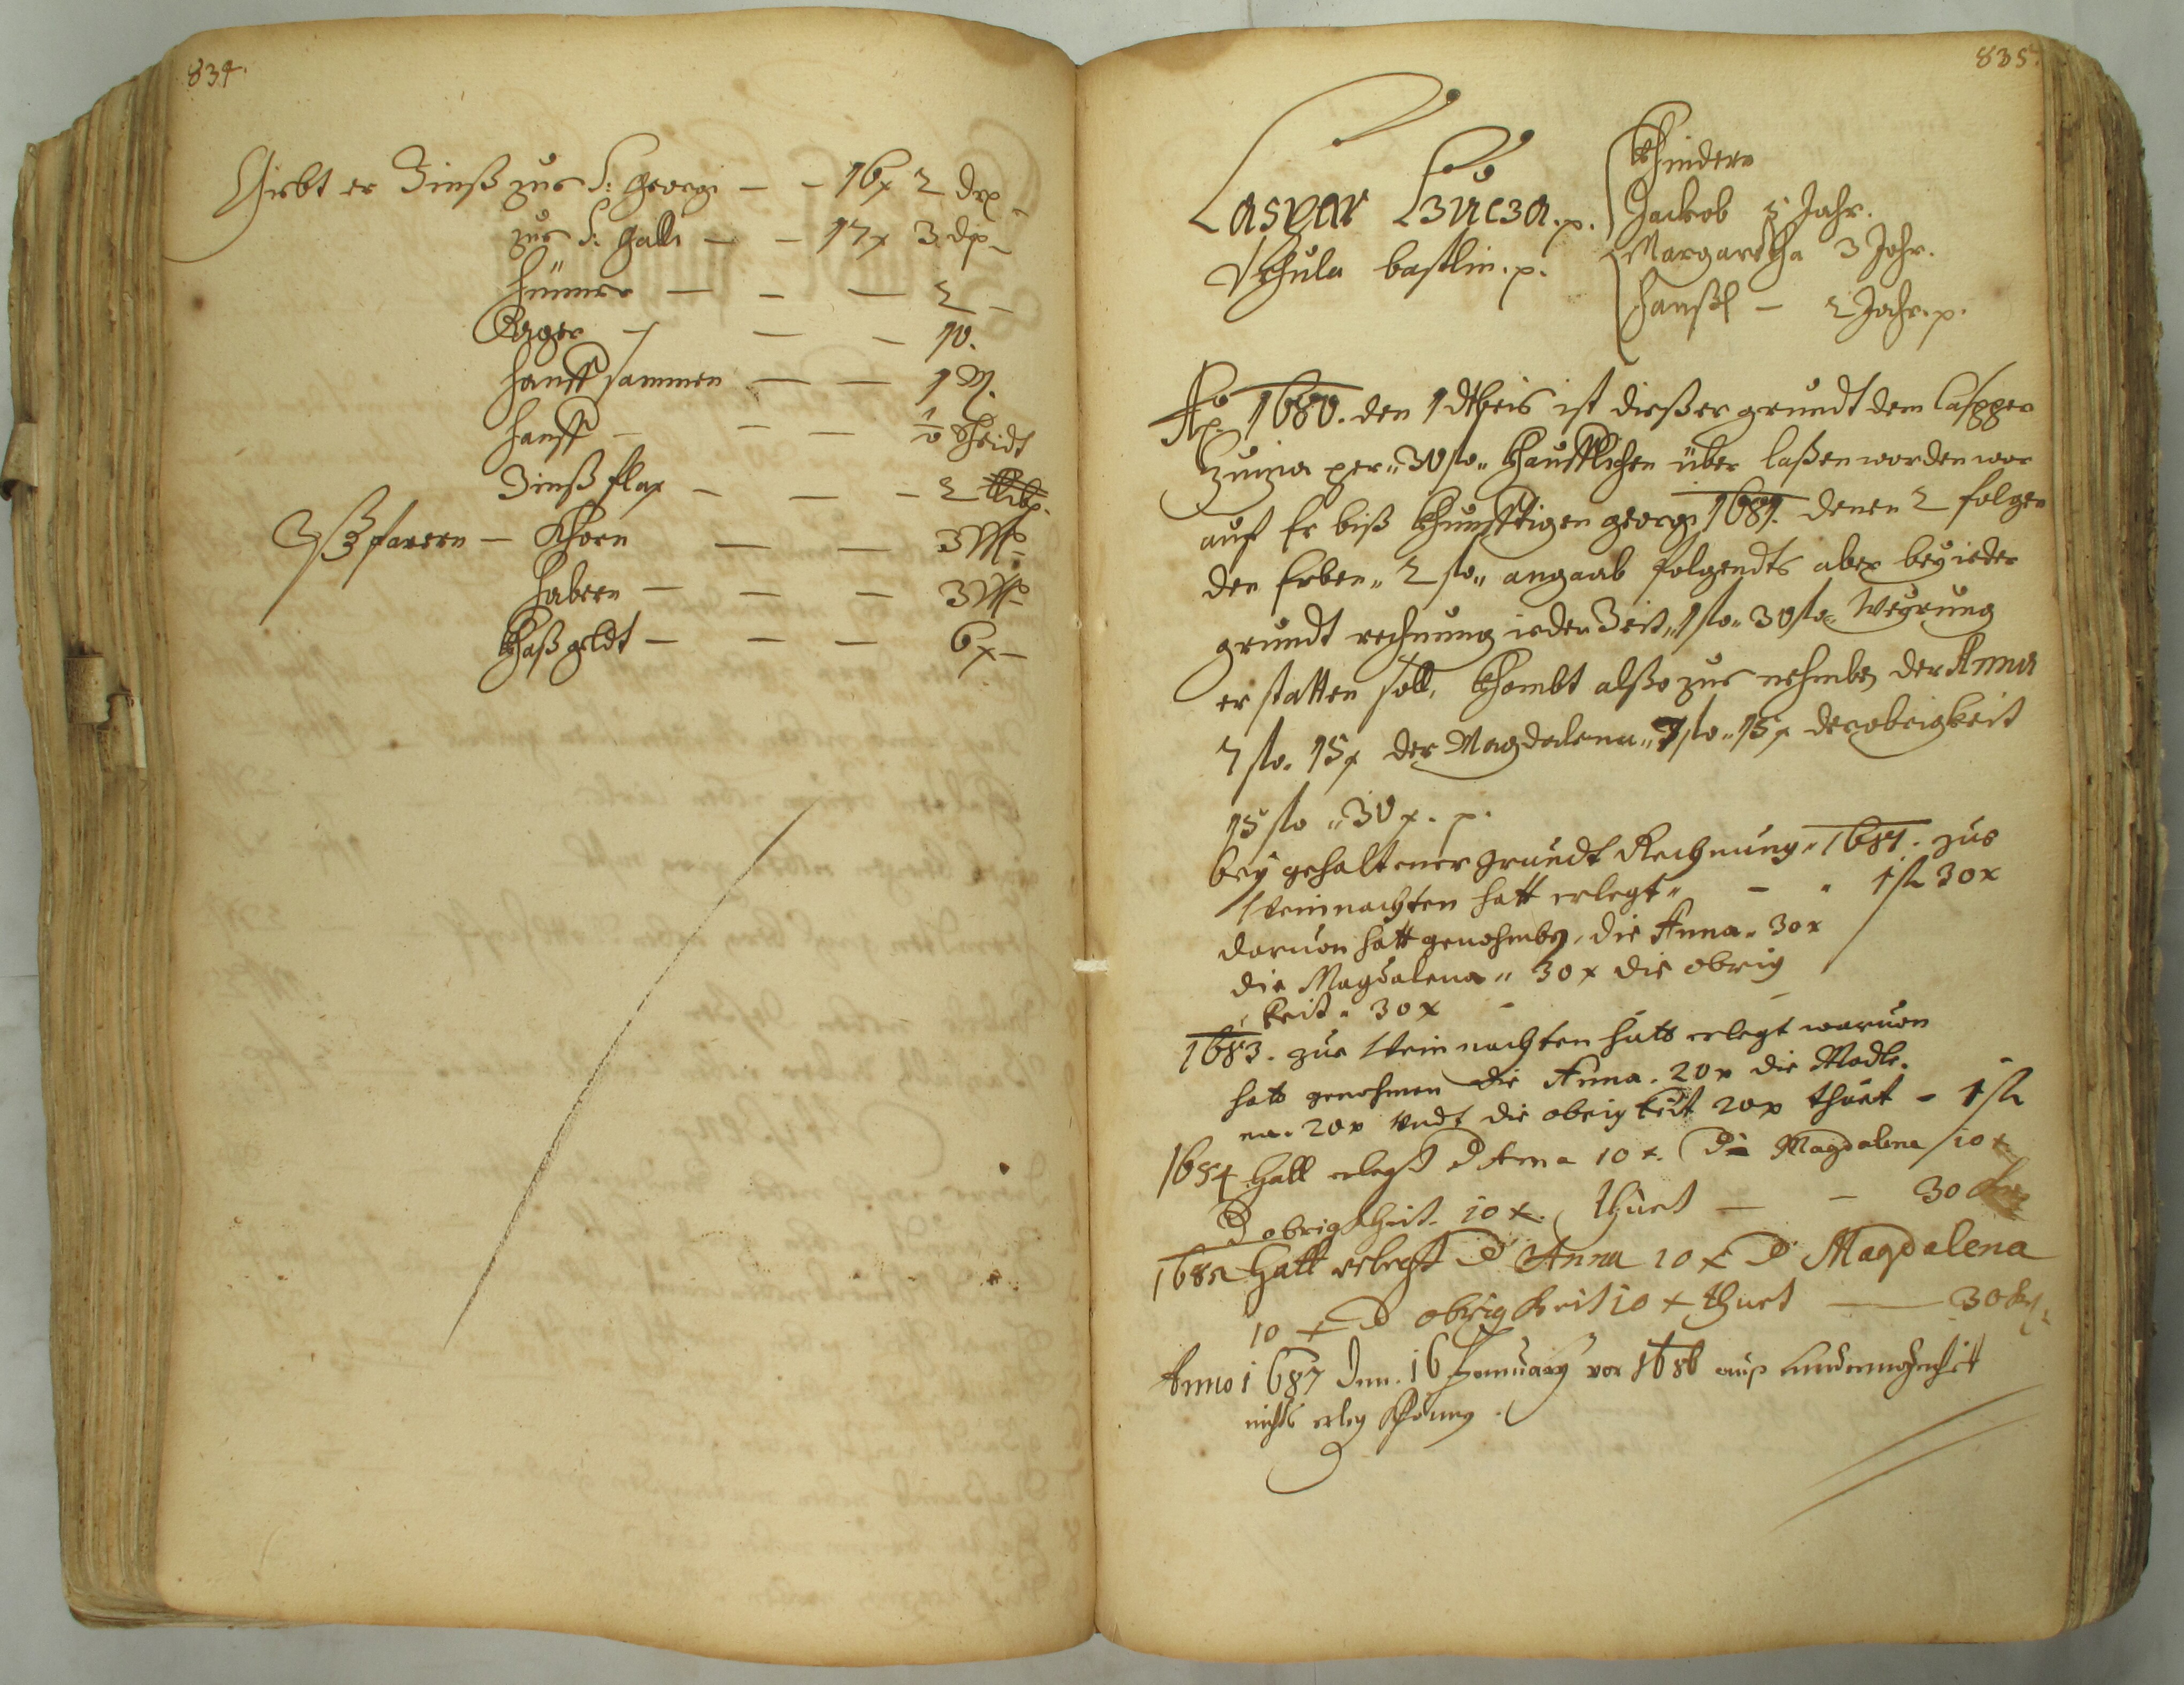 834.
Giebt er Zinß zue S: Georgi – – 16 x 2 dp –
zue S: Galli – – 17 x 3 dp –
Hünner – – – 2 –
Eeyer – – – 10.
Hanff sammen – – 1 M.
Hanff – – – 1/2 Cheidt
Zinß flax – – – 2
Khorn – – 3 M
Habern – – – 3 M
Khaß geldt – – – 6 x –
835.
Caspar Czucza. p.
Vhula bastlin. p.
Khinder
Jackob 5 Jahr.
Margaretha 3 Jahr.
Hanßl – 2 Jahr. p.
Ao 1680. den 1 dießer grundt dem Casper
Czucza per „ 30 ßo „ Khaufflichen über laßen worden wor
auf Er biß Khunfftigen georgi 1681. denen 2 folgen
den Erben „ 2 ßo „ angaab folgendts aber bey ieder
grundt rechnung ieder Zeit „ 1 ßo „ 30 Weyrung
er statten soll, Khombt alßo zue nehmben der Anna
7 ßo. 15 x der Magdalena „ 7 ßo „ 15 x der obrigkeit
15 ßo „ 30 x. p.
bey gehaltener grundt Rechnung „ 1681. zue
Weinnachten hatt erlegt „ – „ 1 ß 30 x
daruon hatt genohmben, die Anna „ 30 x
die Magdalena „ 30 x die obrig
keit „ 30 x –
1683. zue Weinnachten hatt erlegt waruon
hatt genohmen die Anna. 20 x die Madle.
na. 20 x Vndt die obrigkeit 20 x thuet – 1 ß
1684 Hatt erlegt d Anna 10 x. die Magdalena 10 x
d obrigkheit 10 x. thuet – – 30
1685 Hatt erlegt d Anna 10 x d Magdalena
10 x d obrigkeit 10 x thuet – 30
Anno 1687 den 16 January vor 1686 auß
nichts erleg Khönnen.